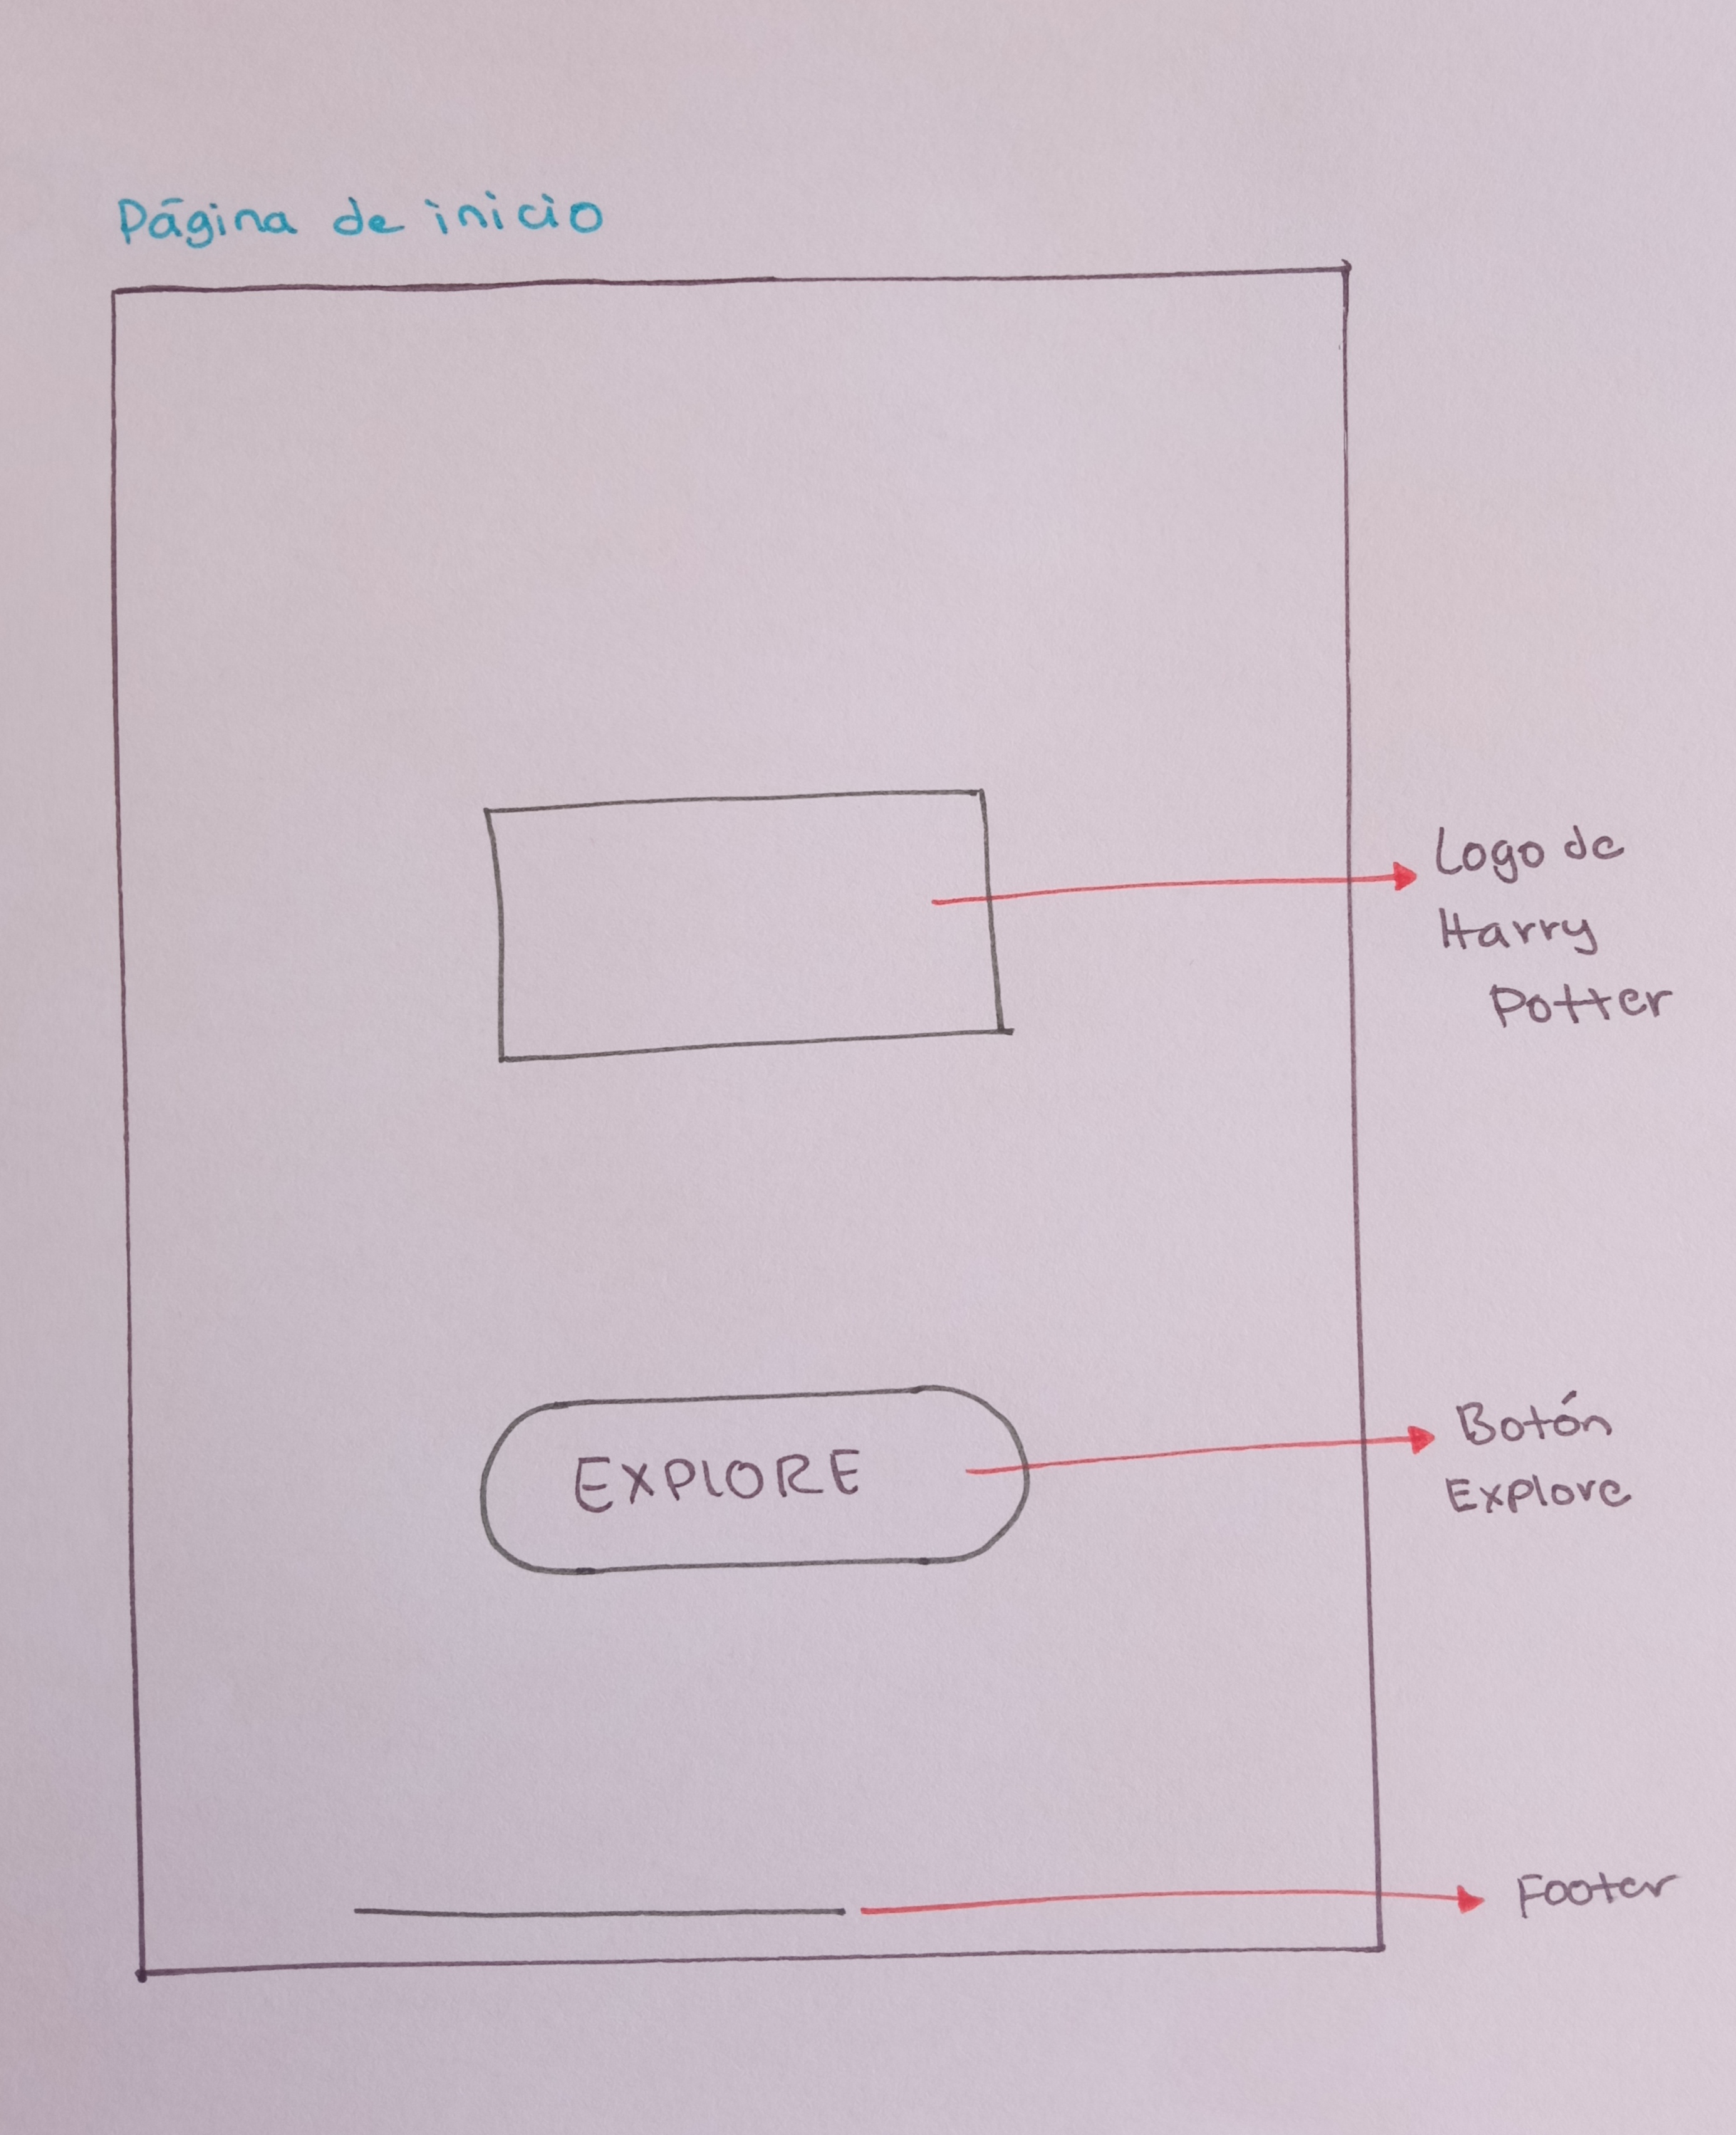 Página de inicio
Logo de
Harry
Potter
EXPLORE
Botón
Explore
Footer